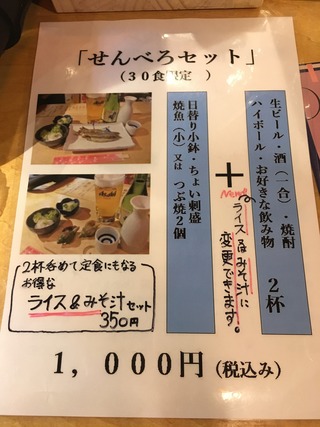 「せんべろセット」
(３０食限定　)
生ビール・酒（一合）・焼酎
ハイボール・お好きな飲み物　２杯
＋
Menu
ライス&みそ汁に
変更できます。
日替り小鉢・ちょい刺盛
焼魚（小）又は　つぶ焼２個
2杯呑めて定食にもなる
お得な
ライス&みそ汁セット
350円
１，０００円(税込み)